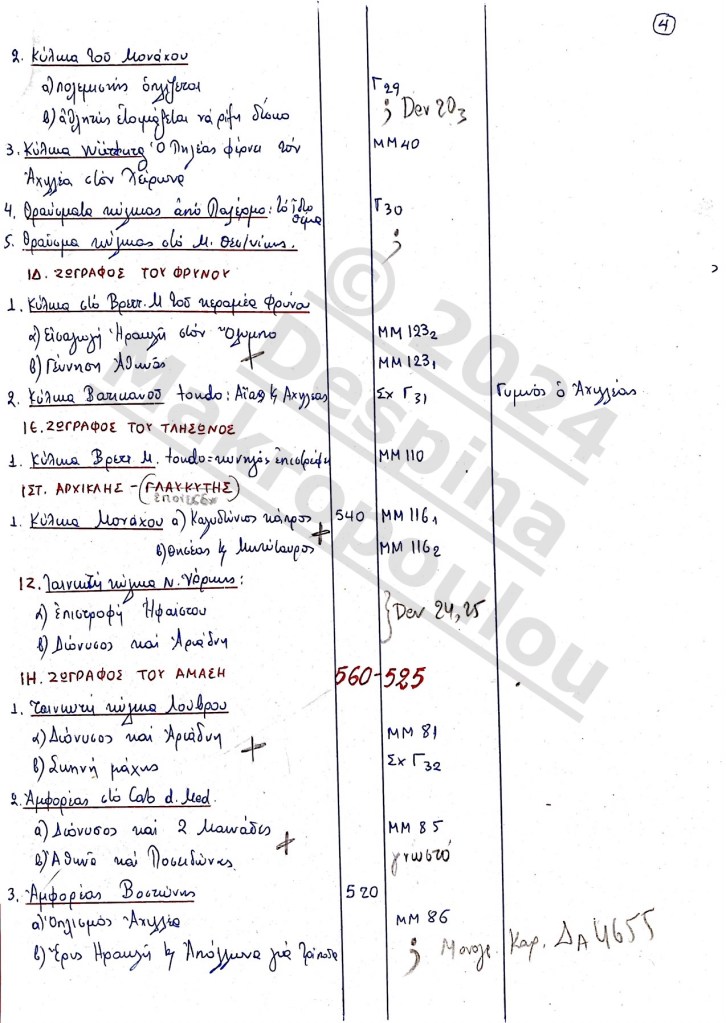 4
2. Κύλικα του Μονάχου
α) πολεμιστής οπλίζεται Γ29
β) ἀθλητής ἑτοιμάζεται νά ρίξη δίσκο ; Dev 20₃
3. Κύλικα Ὁ Πηλέας φέρνει τόν ΜΜ 40
Ἀχιλλέα στόν Χείρωνα
4. Θραύσματα κύλικας ἀπό Παλέρμο: τό ἴδιο θέμα Γ30
5. Θραῦσμα κύλικας στό Μ. Θεσ/νίκης. ;
ΙΔ. ΖΩΓΡΑΦΟΣ ΤΟΥ ΦΡΥΝΟΥ
1. Κύλικα στό Βρετ. Μ τοῦ κεραμέα Φρύνου
α) Εἰσαγωγή Ἡρακλῆ στόν Ὄλυμπο ΜΜ 123₂
β) Γέννηση Ἀθηνᾶς + ΜΜ 123₁
2. Κύλικα Βατικανοῦ tondo: Αἴας & Αχιλλέας Σχ Γ31 Γυμνός ὁ Ἀχιλλέας
ΙΕ. ΖΩΓΡΑΦΟΣ ΤΟΥ ΤΛΗΣΩΝΟΣ
1. Κύλικα Βρετ Μ. tondo= κυνηγός ἐπιστρέφει ΜΜ 110
ΙΣΤ. ΑΡΧΙΚΛΗΣ - ΓΛΑΥΚΥΤΗΣ
ἐποίεσεν
1. Κύλικα Μονάχου α) Καλυδώνιος κάπρος 540 ΜΜ 116₁
β) Θησέας & Μινώταυρος + ΜΜ 116₂
ΙΖ. Ταινιωτή κύλικα Ν. Υόρκης:
α) ἐπιστροφή Ἡφαίστου } Dev 24,25
β) Διόνυσος καί Ἀριάδνη
ΙΗ. ΖΩΓΡΑΦΟΣ ΤΟΥ ΑΜΑΣΗ 560-525
1. Ταινιωτή κύλικα Λούβρου
α) Διόνυσος καί Ἀριάδνη ΜΜ 81
β) Σκηνή μάχης + Σχ Γ32
2. Ἀμφορέας στό Cab d. Med.
α) Διόνυσος καί 2 Μαινάδες ΜΜ 85
β) Ἀθηνᾶ καί Ποσειδώνας + γνωστό
3. Ἀμφορέας Βοστώνης 520
α) Ὁπλισμός Ἀχιλλέα ΜΜ 86
β) Ἔρις Ἡρακλῆ & Ἀπόλλωνα γιά τρίποδα ; Μονογρ. Καρ. ΔΑ 4655
© 2024
Despina
Makropoulou